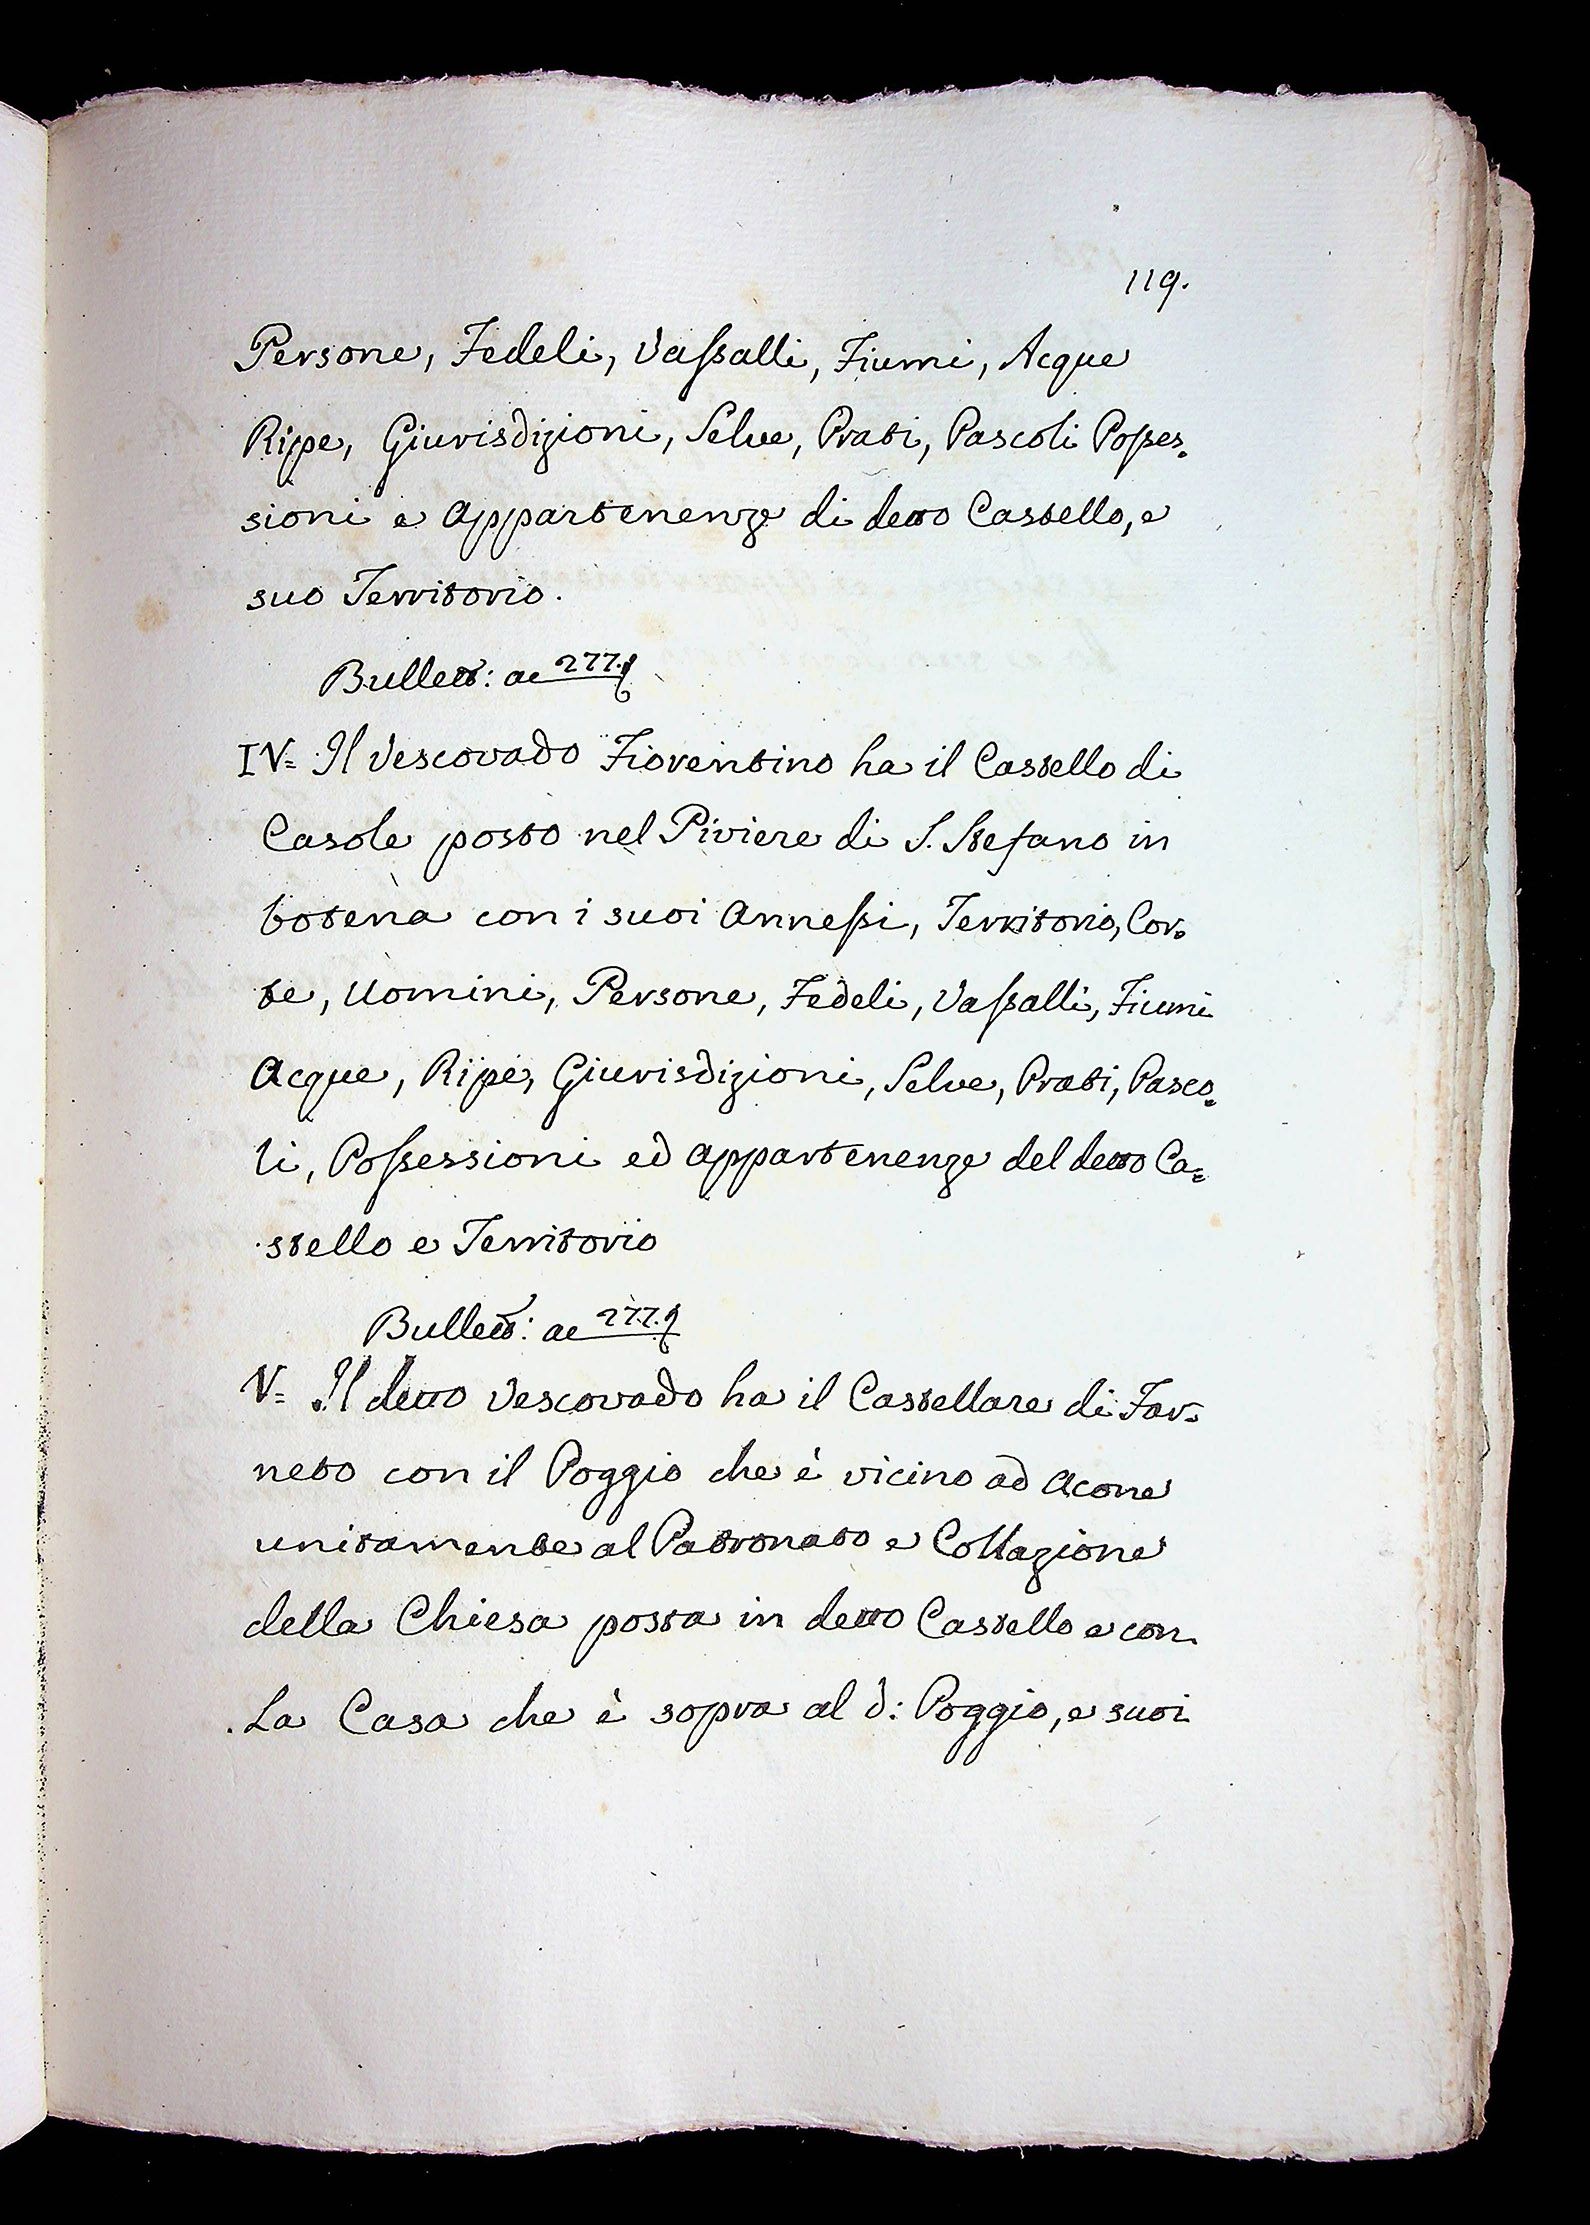 119.
Persone, Fedeli, Vassalli, Fiumi, Acque
Ripe, Giurisdizioni, Selve, Prati, Pascoli Posses=
sioni e Appartenenze di detto Castello, e
suo Territorio.
Bullett: ac 277.
IV= Il Vescovado Fiorentino ha il Castello di
Casole posto nel Piviere di S. Stefano in
botena con i suoi Annessi, Territorio, Cor=
te, Uomini, Persone, Fedeli, Vassalli, Fiumi
Acque, Ripe, Giurisdizioni, Selve, Prati, Pasco=
li, Possessioni ed appartenenze del detto Ca=
stello e Territorio
Bullett: ac 277.
V= Il detto Vescovado ha il Castellare di Far=
neto con il Poggio che è vicino ad Acone
unitamente al Patronato e Collazione
della Chiesa posta in detto Castello e con
La Casa che è sopra al d: Poggio, e suoi